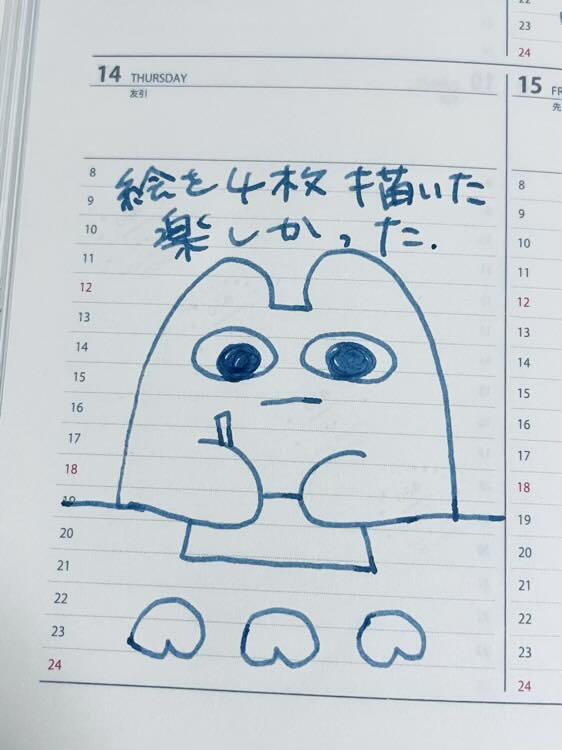 22
23
24
14 THURSDAY
友引
15
8
9
10
11
12
13
14
15
16
17
18
19
20
21
22
23
24
絵を4枚描いた
楽しかった.
8
9
10
11
12
13
14
15
16
17
18
19
20
21
22
23
24